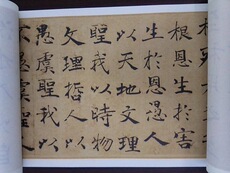 根恩生於害
生於恩愚人
以天地文理
聖我以時物
文理哲人以
愚虞聖我以